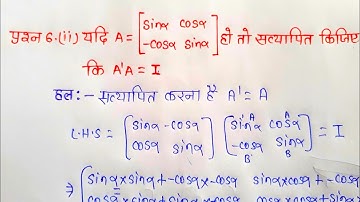 प्रश्न 6.(ii) यदि A = [sinα cosα
-cosα sinα] हो तो सत्यापित किजिए
कि A'A = I
हल:- सत्यापित करना है A' = A
L.H.S = [sinα -cosα
cosα sinα] [sinα cosα
-cosα sinα] = I
A A
B' B
⇒ [sinα×sinα+-cosα×-cosα sinα×cosα+-cosα